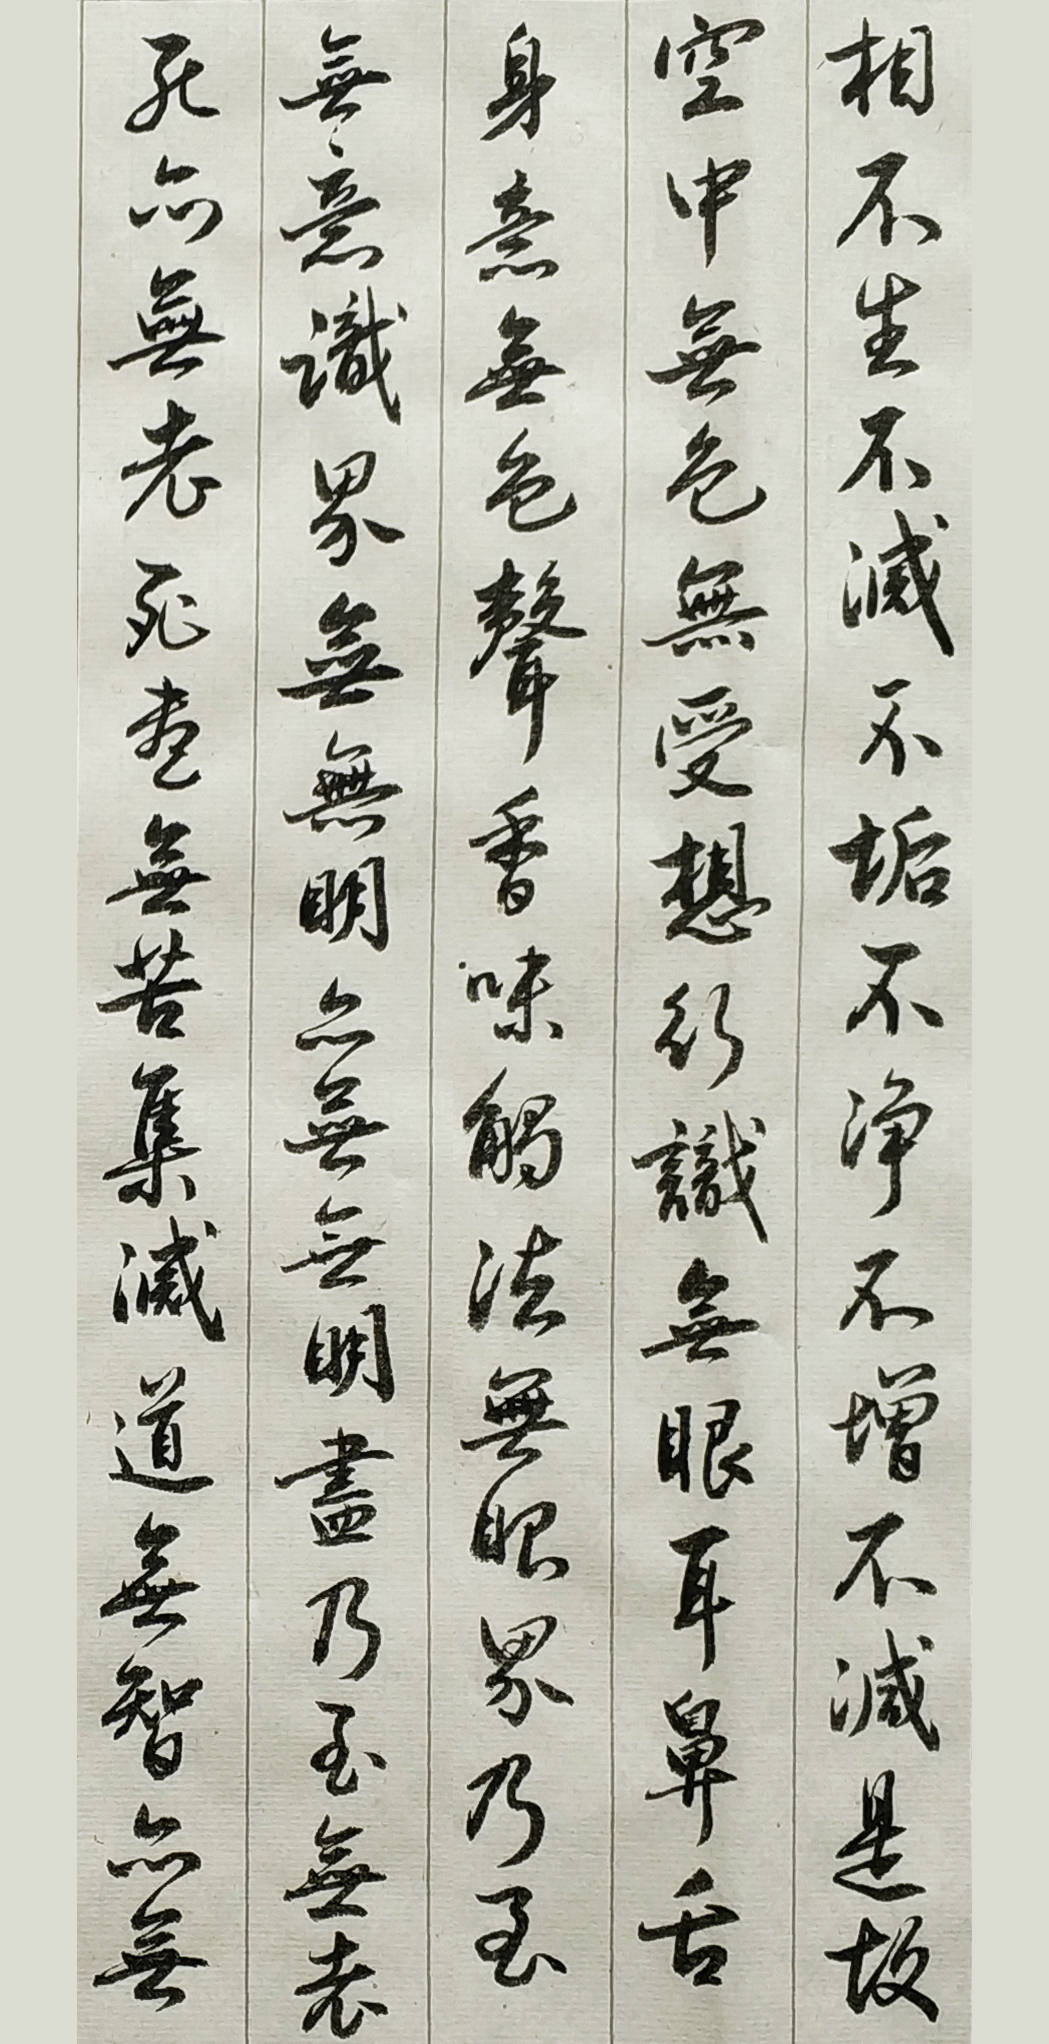 相不生不滅不垢不淨不增不減是故
空中無色無受想行識無眼耳鼻舌
身意無色聲香味觸法無眼界乃至
無意識界無無明亦無無明盡乃至無老
死亦無老死盡無苦集滅道無智亦無